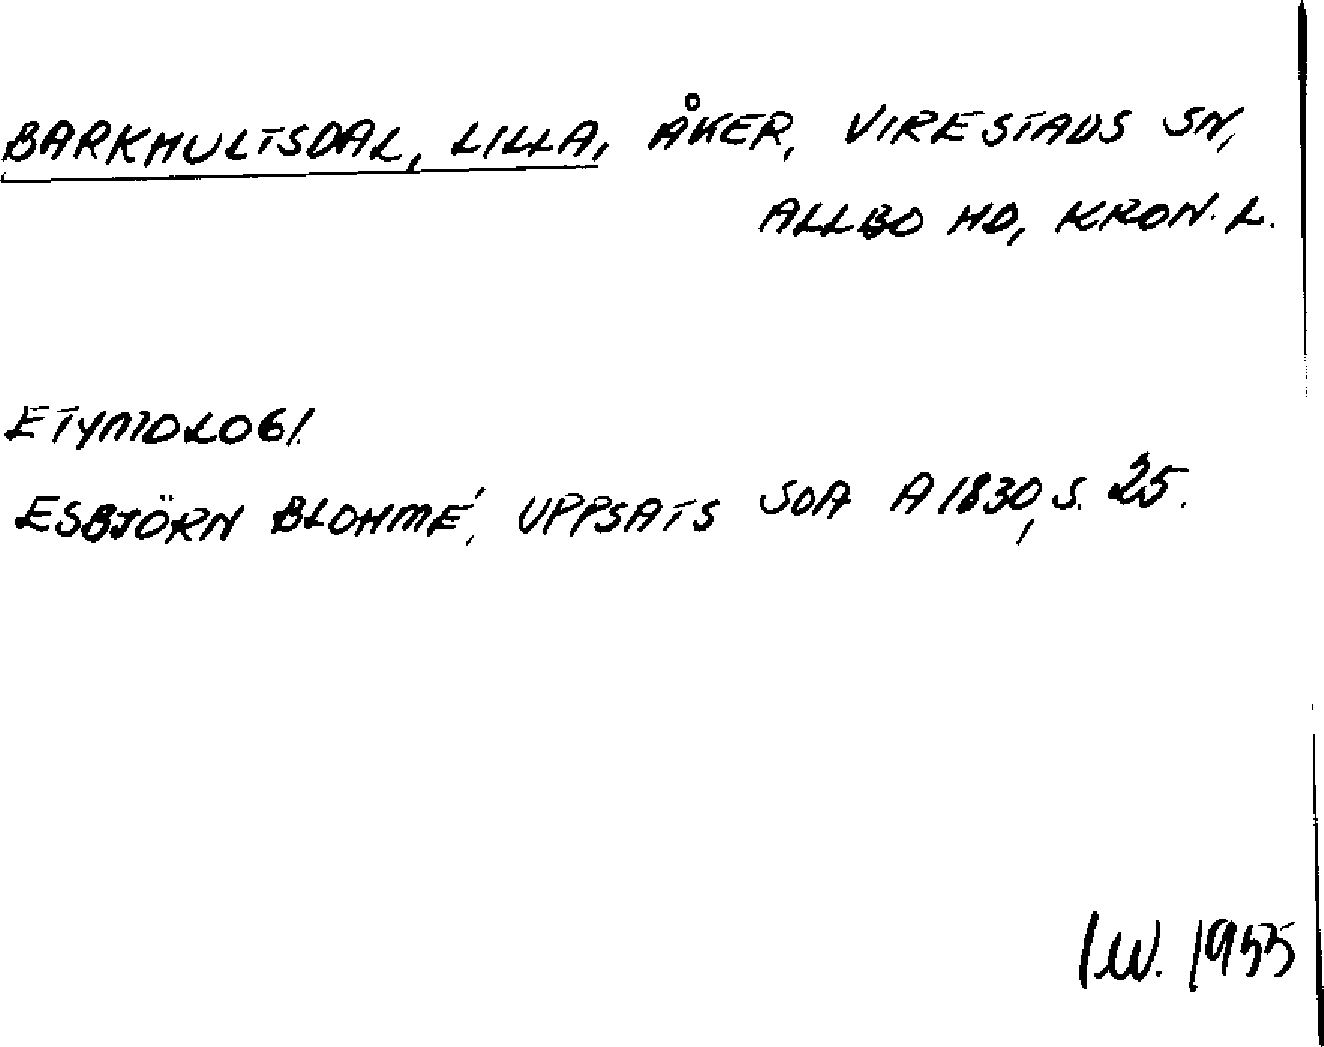 BARKHULTSDAL, LILLA, ÅKER, VIRESTADS SN,
ALLBO HD, KRON. L.
ETYMOLOGI.
ESBJÖRN BLOHMÉ, UPPSATS SOA A 1830, S. 25.
I.W. 1955